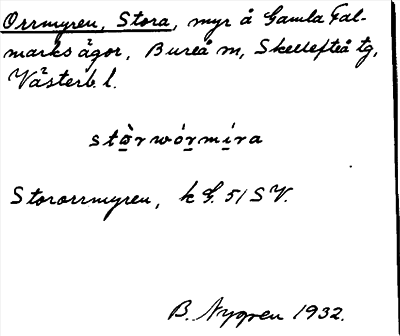 Orrmyren, Stora, myr å Gamla Fal-
marks ägor, Bureå sn, Skellefteå tg,
Västerb. l.
stòrwórmíra
Stororrmyren, k bl. 51 SV.
B. Nygren 1932.